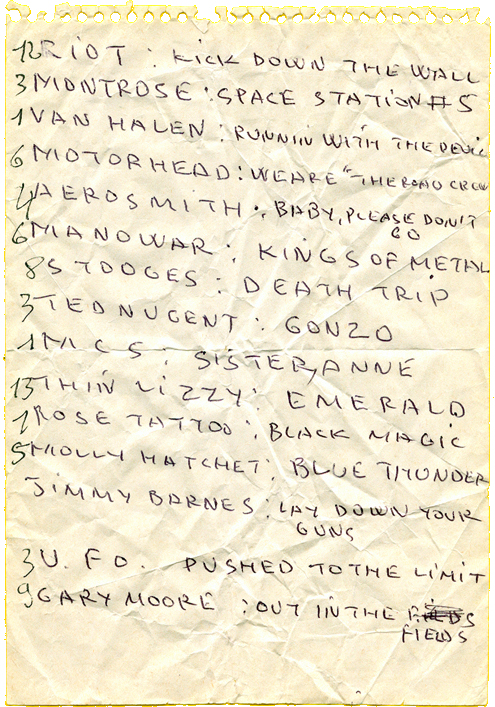 12 RIOT : KICK DOWN THE WALL
3 MONTROSE : SPACE STATION #5
1 VAN HALEN : RUNNIN WITH THE DEVIL
6 MOTORHEAD : WE ARE "THE ROAD CREW
4 AEROSMITH : BABY, PLEASE DON'T
GO
6 MANOWAR : KINGS OF METAL
8 STOOGES : DEATH TRIP
3 TED NUGENT : GONZO
1 MC5 : SISTER, ANNE
13 THIN LIZZY : EMERALD
1 ROSE TATTOO : BLACK MAGIC
5 MOLLY HATCHET : BLUE THUNDER
JIMMY BARNES : LAY DOWN YOUR
GUNS
3 U. F O. PUSHED TO THE LIMIT
9 GARY MOORE : OUT IN THE
FIELDS